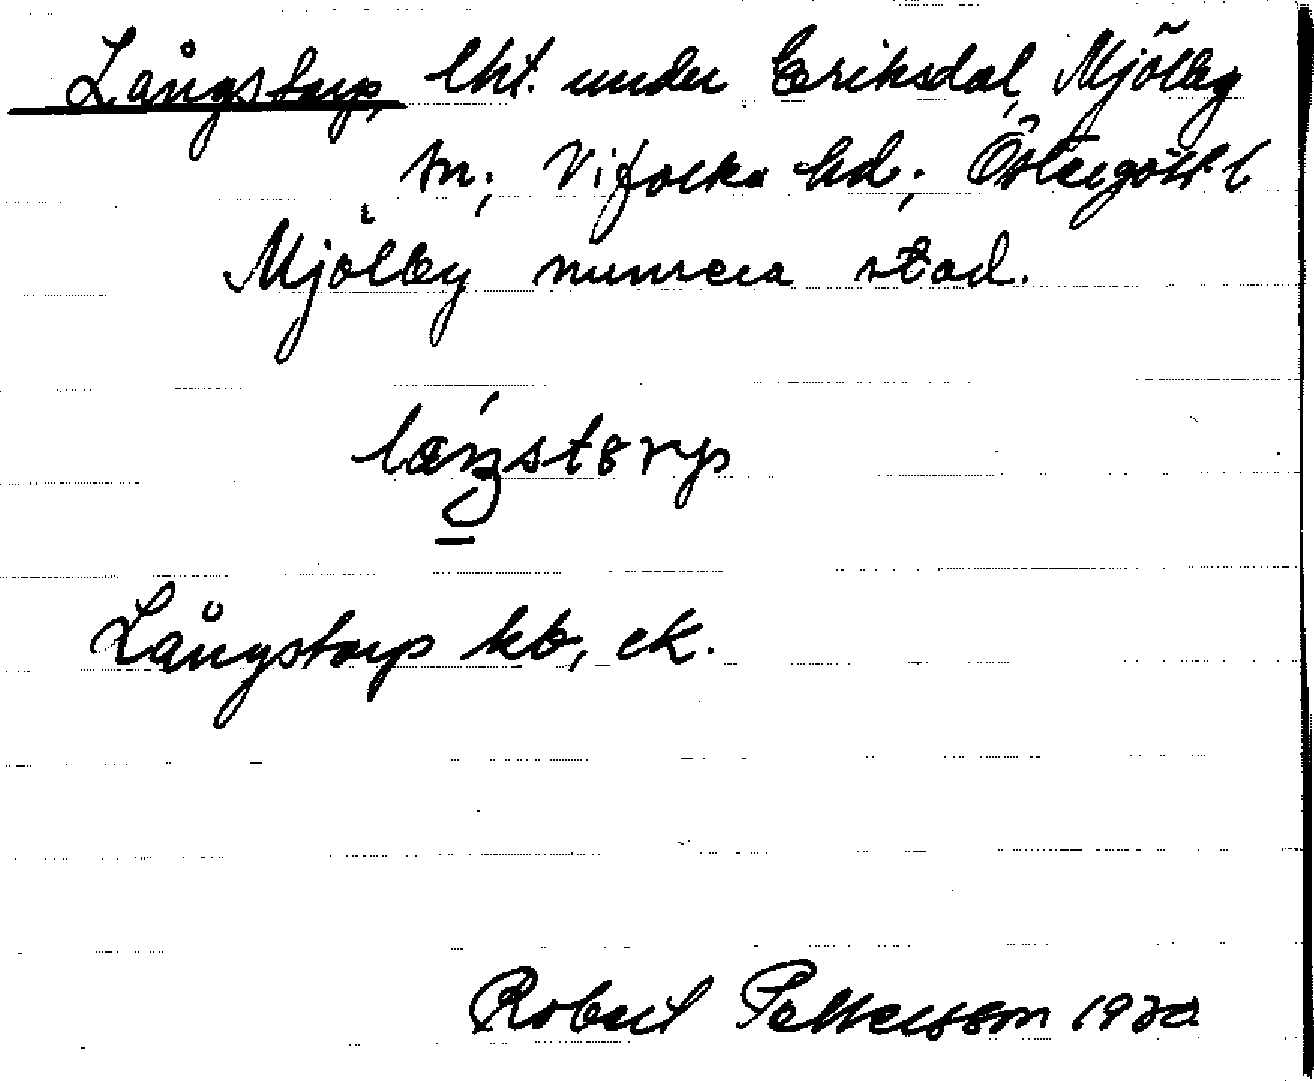 Långstorp, lht. under Eriksdal, Mjölby
sn; Vifolka hd; Östergötl. l
Mjölby numera stad.
Långstorp kb, ek.
Robert Pettersson 1920